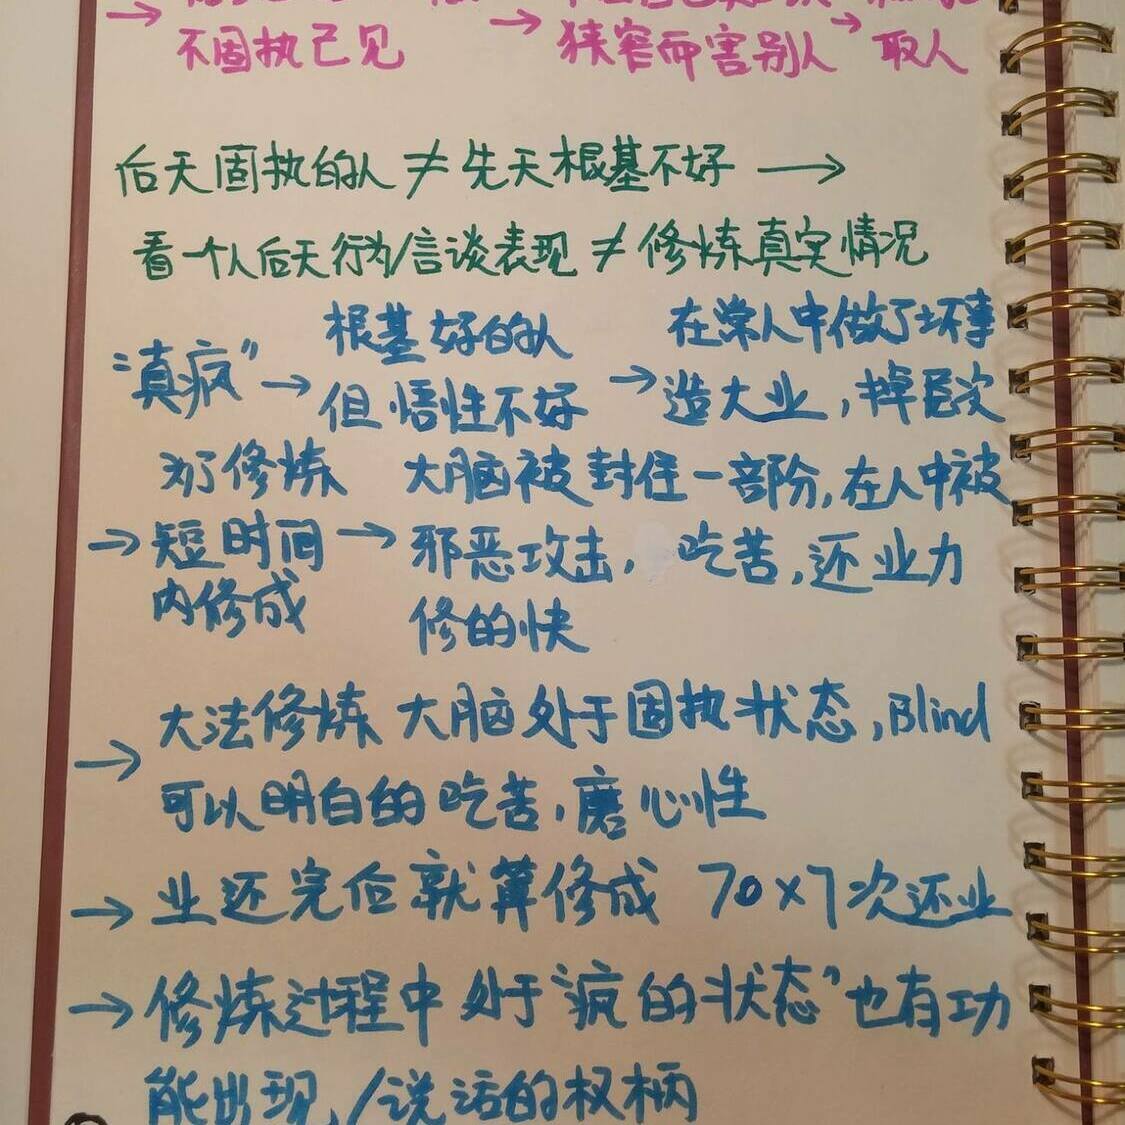 不固执己见 → 狭窄而害别人 → 取人
后天固执的人 ≠ 先天根基不好 →
看一个人后天行为/言谈表现 ≠ 修炼真实情况
根基好的人 在常人中做了坏事
“真疯” → 但悟性不好 → 造大业，掉层次
为了修炼 大脑被封住一部分，在人中被
→ 短时间 → 邪恶攻击，吃苦，还业力
内修成 修的快
大法修炼 大脑处于固执状态，Blind
→ 可以明白的吃苦，磨心性
→ 业还完后就算修成 70×7次还业
→ 修炼过程中处于“疯的状态”也有功
能出现/说话的权柄